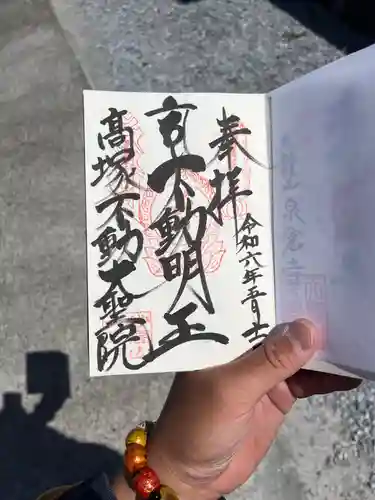 奉拝
令和六年五月十
不動明王
高塚不動大聖院
泉倉寺